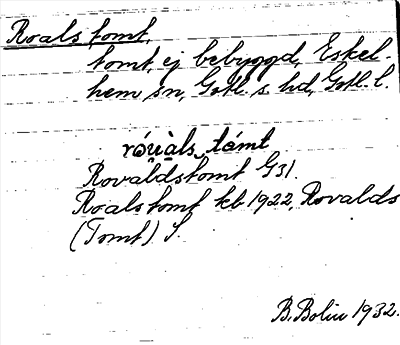 Roals tomt,
tomt, ej bebyggd, Eskel-
hem sn, Gotl. s. hd, Gotl. l.
róu̯àls tómt
Rovaldstomt G31.
Roalstomt kb 1922, Rovalds
(Tomt) S.
B. Bolin 1932.